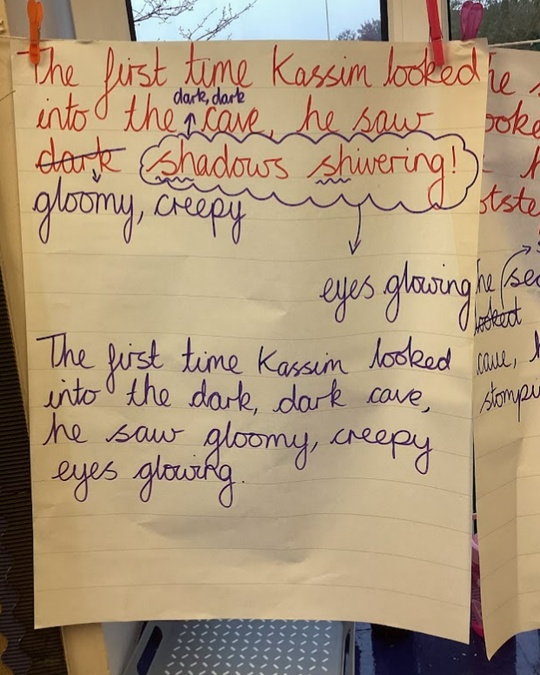 The first time Kassim looked
dark, dark
into the cave, he saw
dark shadows shivering!
gloomy, creepy
eyes glowing
The first time Kassim looked
into the dark, dark cave,
he saw gloomy, creepy
eyes glowing.
he
he
looked
cave,